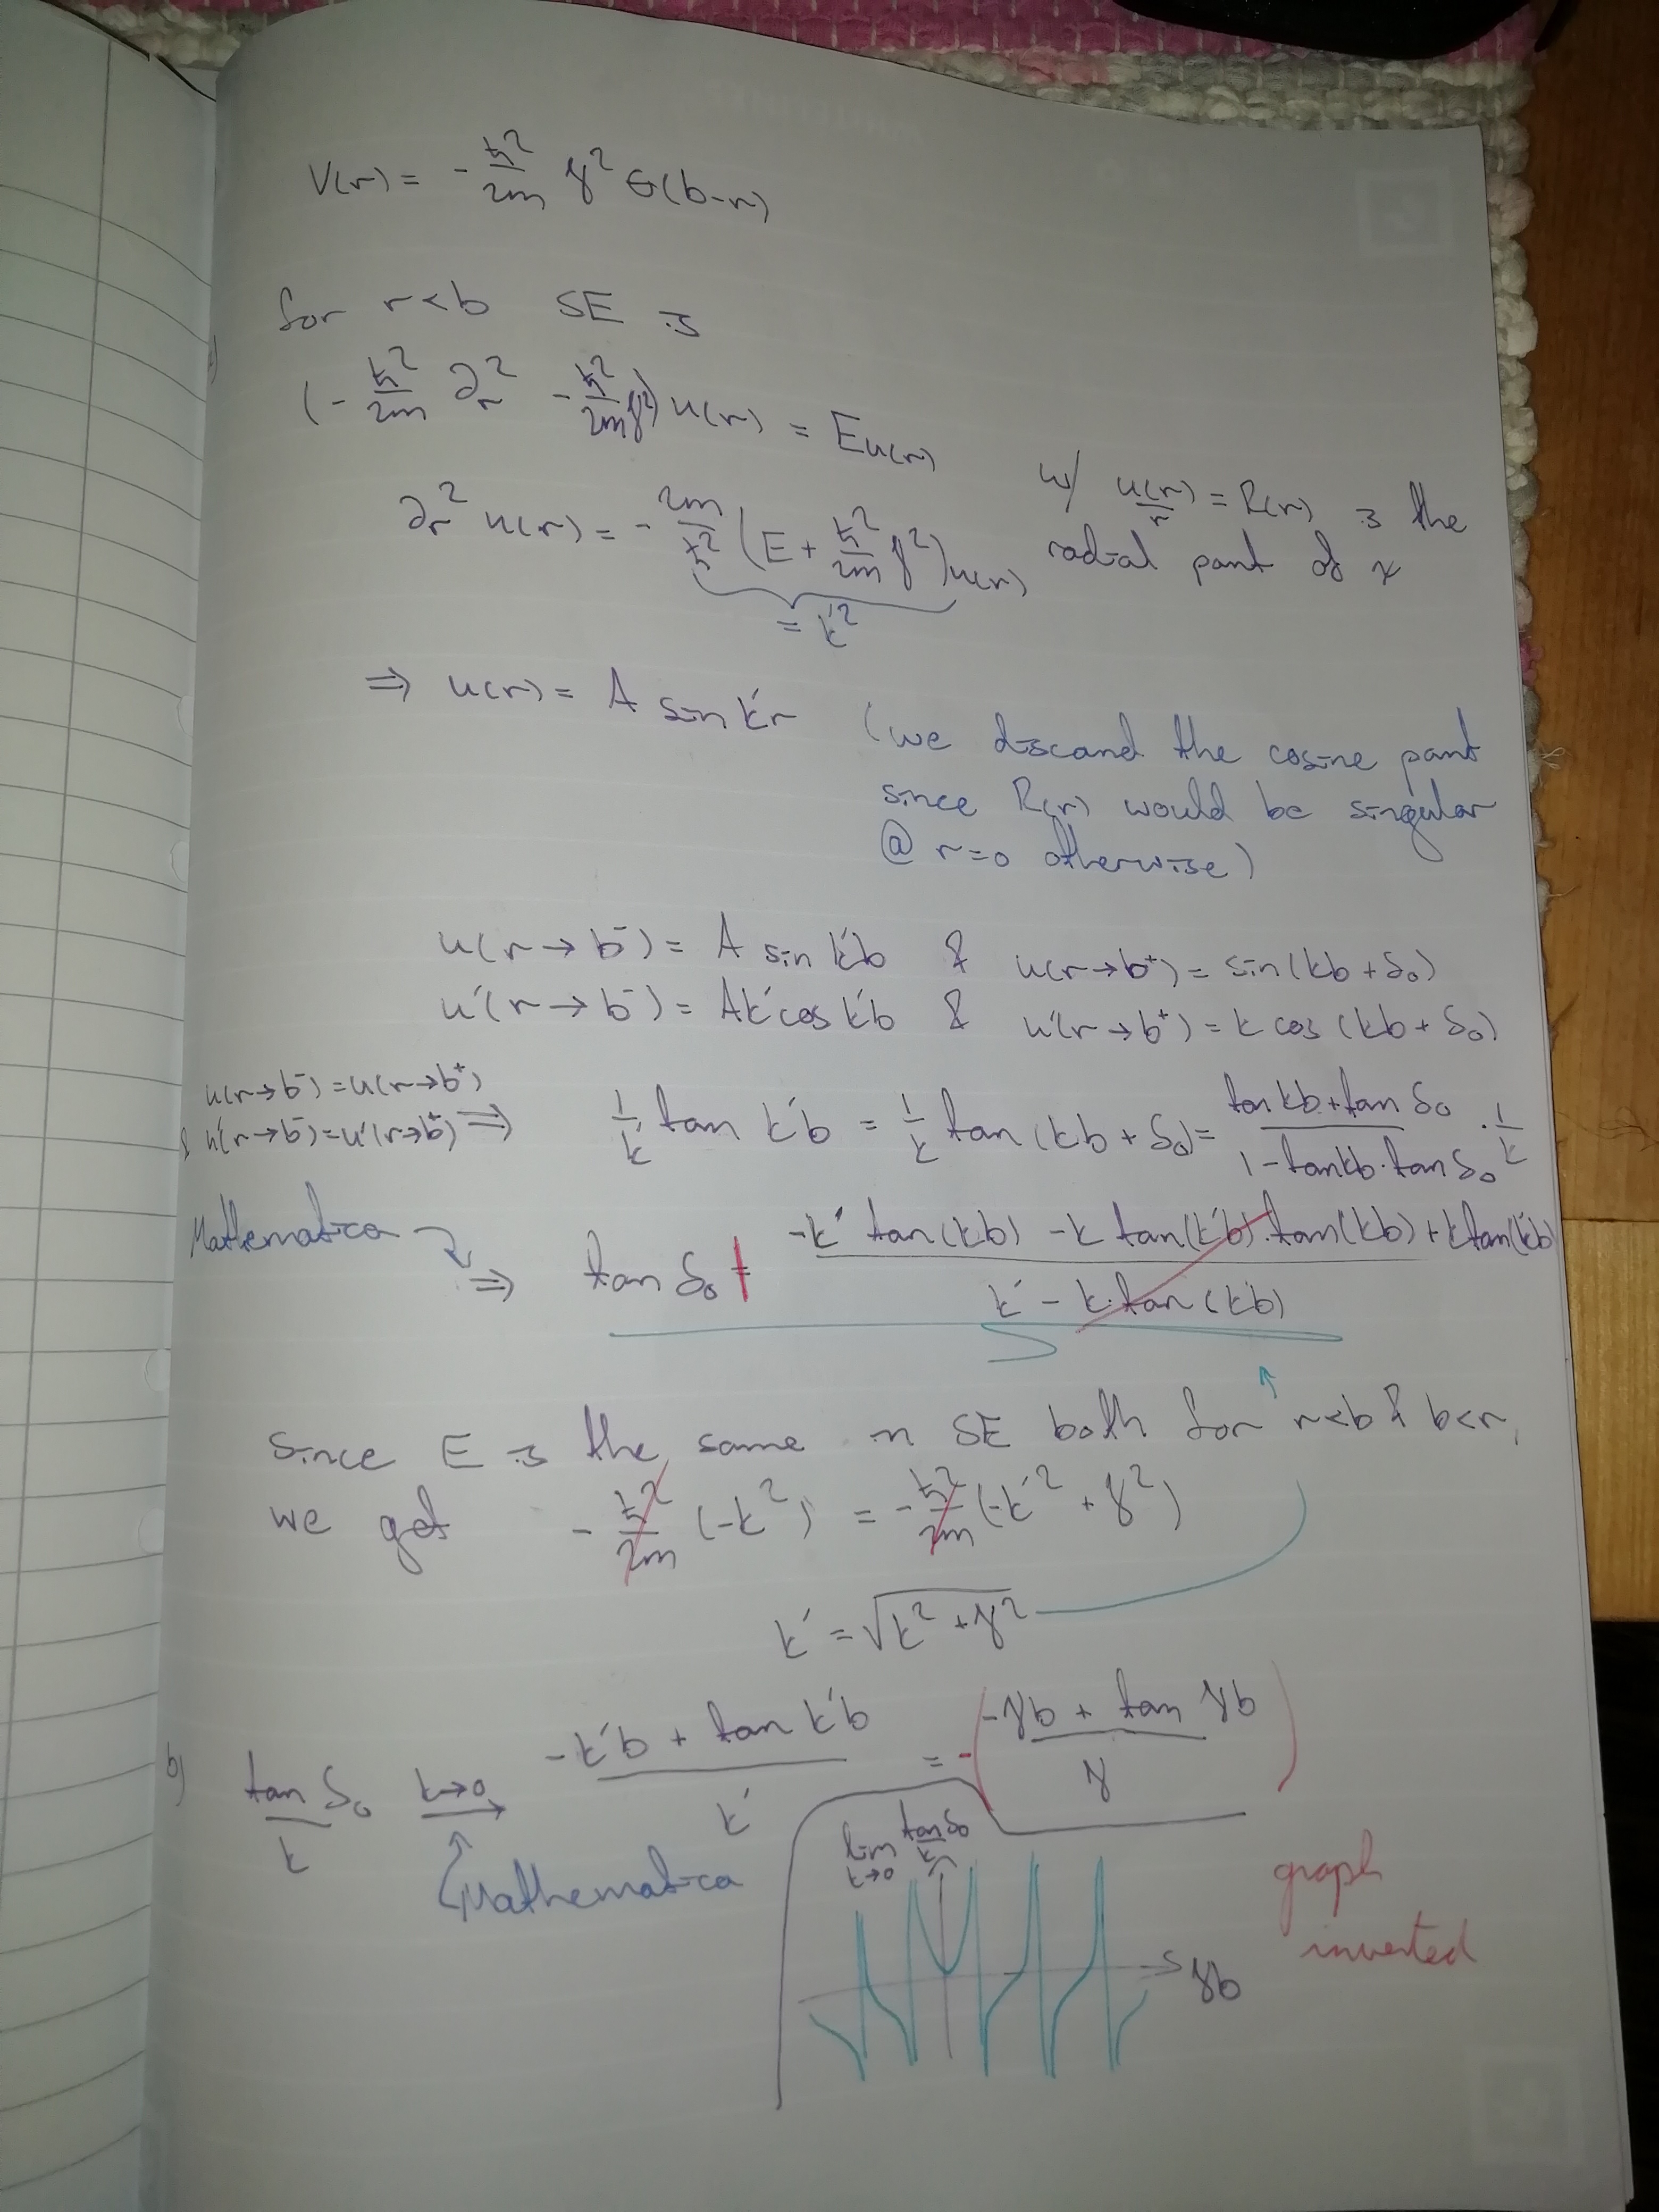 V(r) = -ℏ²/2m γ² Θ(b-r)
for r<b SE is
(-ℏ²/2m ∂r² - ℏ²/2m γ²) u(r) = E u(r)
w/ u(r)/r = R(r) is the
∂r² u(r) = - 2m/ℏ² (E + ℏ²/2m γ²) u(r)
radial part of ψ
= k'²
⇒ u(r) = A sin k'r (we discard the cosine part
since R(r) would be singular
@ r=0 otherwise)
u(r→b⁻) = A sin k'b & u(r→b⁺) = sin(kb+δ₀)
u'(r→b⁻) = Ak' cos k'b & u'(r→b⁺) = k cos(kb+δ₀)
u(r→b⁻)=u(r→b⁺)
& u'(r→b⁻)=u'(r→b⁺) ⇒ 1/k' tan k'b = 1/k tan(kb+δ₀) = (tan kb + tan δ₀)/(1 - tan kb · tan δ₀) · 1/k
Mathematica
⇒ tan δ₀ = (-k' tan(kb) - k tan(k'b)·tan(kb) + k tan(k'b))/(k' - k·tan(k'b))
Since E is the same in SE both for r<b & b<r,
we get -ℏ²/2m (-k²) = -ℏ²/2m (-k'² + γ²)
k' = √(k² + γ²)
b) tan δ₀/k k→0 → (-k'b + tan k'b)/k' = -((-γb + tan γb)/γ)
Mathematica
lim k→0 tan δ₀/k
graph
inverted
γb